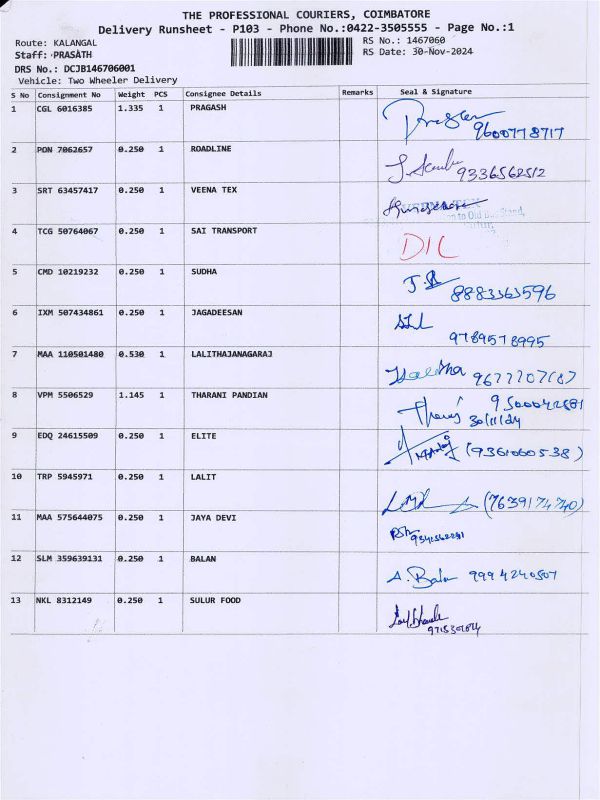 THE PROFESSIONAL COURIERS, COIMBATORE
Delivery Runsheet - P103 - Phone No.:0422-3505555 - Page No.:1
Route: KALANGAL
RS No.: 1467060
Staff: PRASATH
RS Date: 30-Nov-2024
DRS No.: DCJB146706001
Vehicle: Two Wheeler Delivery
S No Consignment No Weight PCS Consignee Details Remarks Seal & Signature
1 CGL 6016385 1.335 1 PRAGASH 9600778717
2 PON 7062657 0.250 1 ROADLINE 9336562512
3 SRT 63457417 0.250 1 VEENA TEX
to Old Bus Stand,
4 TCG 50764067 0.250 1 SAI TRANSPORT DIL
5 CMD 10219232 0.250 1 SUDHA 8883363596
6 IXM 507434861 0.250 1 JAGADEESAN
9789578995
7 MAA 110501480 0.530 1 LALITHAJANAGARAJ Lalitha
8 VPM 5506529 1.145 1 THARANI PANDIAN
30/11/24
9 EDQ 24615509 0.250 1 ELITE (9361060538)
10 TRP 5945971 0.250 1 LALIT (7639174740)
11 MAA 575644075 0.250 1 JAYA DEVI
12 SLM 359639131 0.250 1 BALAN A. Balan 9994240507
13 NKL 8312149 0.250 1 SULUR FOOD